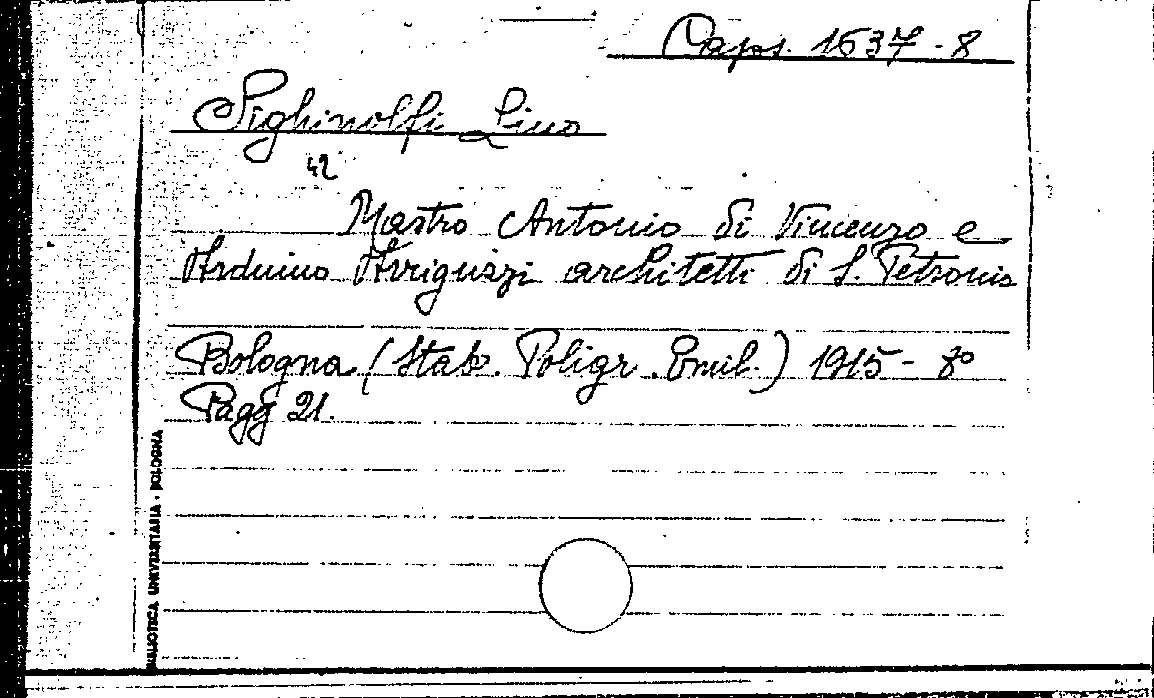 Caps. 1637-8
Sighinolfi Lino
42
Mastro Antonio di Vincenzo e
Arduino Arriguzzi architetti di S. Petronio
Bologna (Stab. Poligr. Emil.) 1915 - 8°
Pagg 21.
BIBLIOTECA UNIVERSITARIA - BOLOGNA